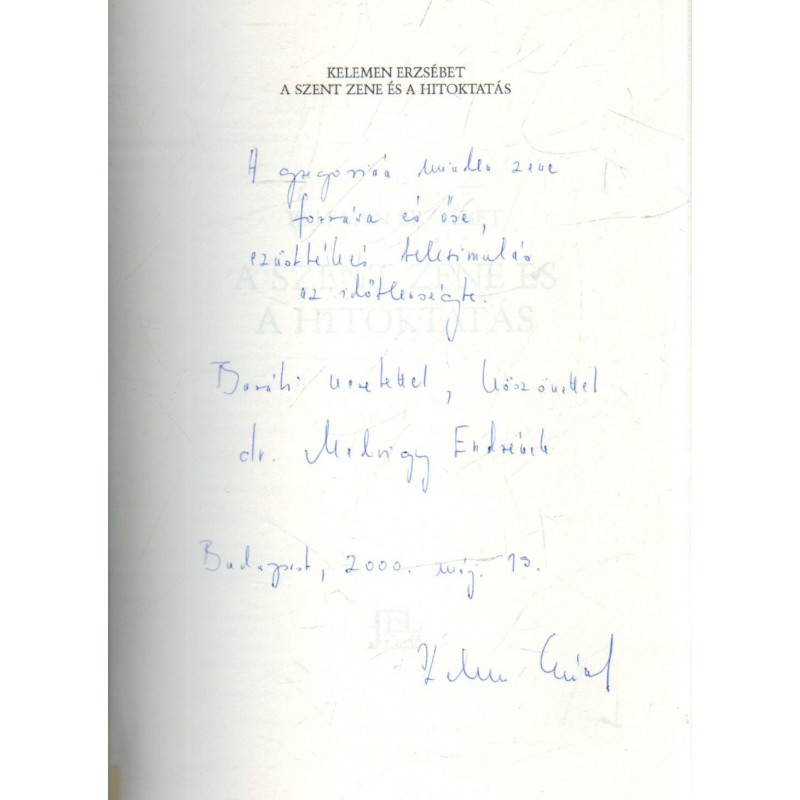 KELEMEN ERZSÉBET
A SZENT ZENE ÉS A HITOKTATÁS
A gregorián minden zene
forrása és őse,
telesimulás
az időtlenségbe.
Baráti szeretettel, köszönettel
dr. Medvigy Endrének
Budapest, 2000. máj. 19.
Kelemen Erzsébet
A SZENT ZENE ÉS
A HITOKTATÁS
JEL